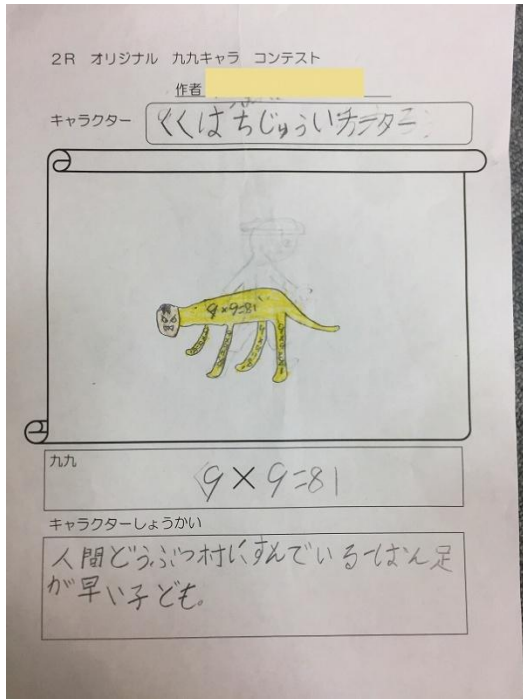 2R オリジナル 九九キャラ コンテスト
作者
キャラクター くくはちじゅういチーター
9×9=81
九九
9×9=81
キャラクターしょうかい
人間どうぶつ村にすんでいる一ばん足
が早い子ども。